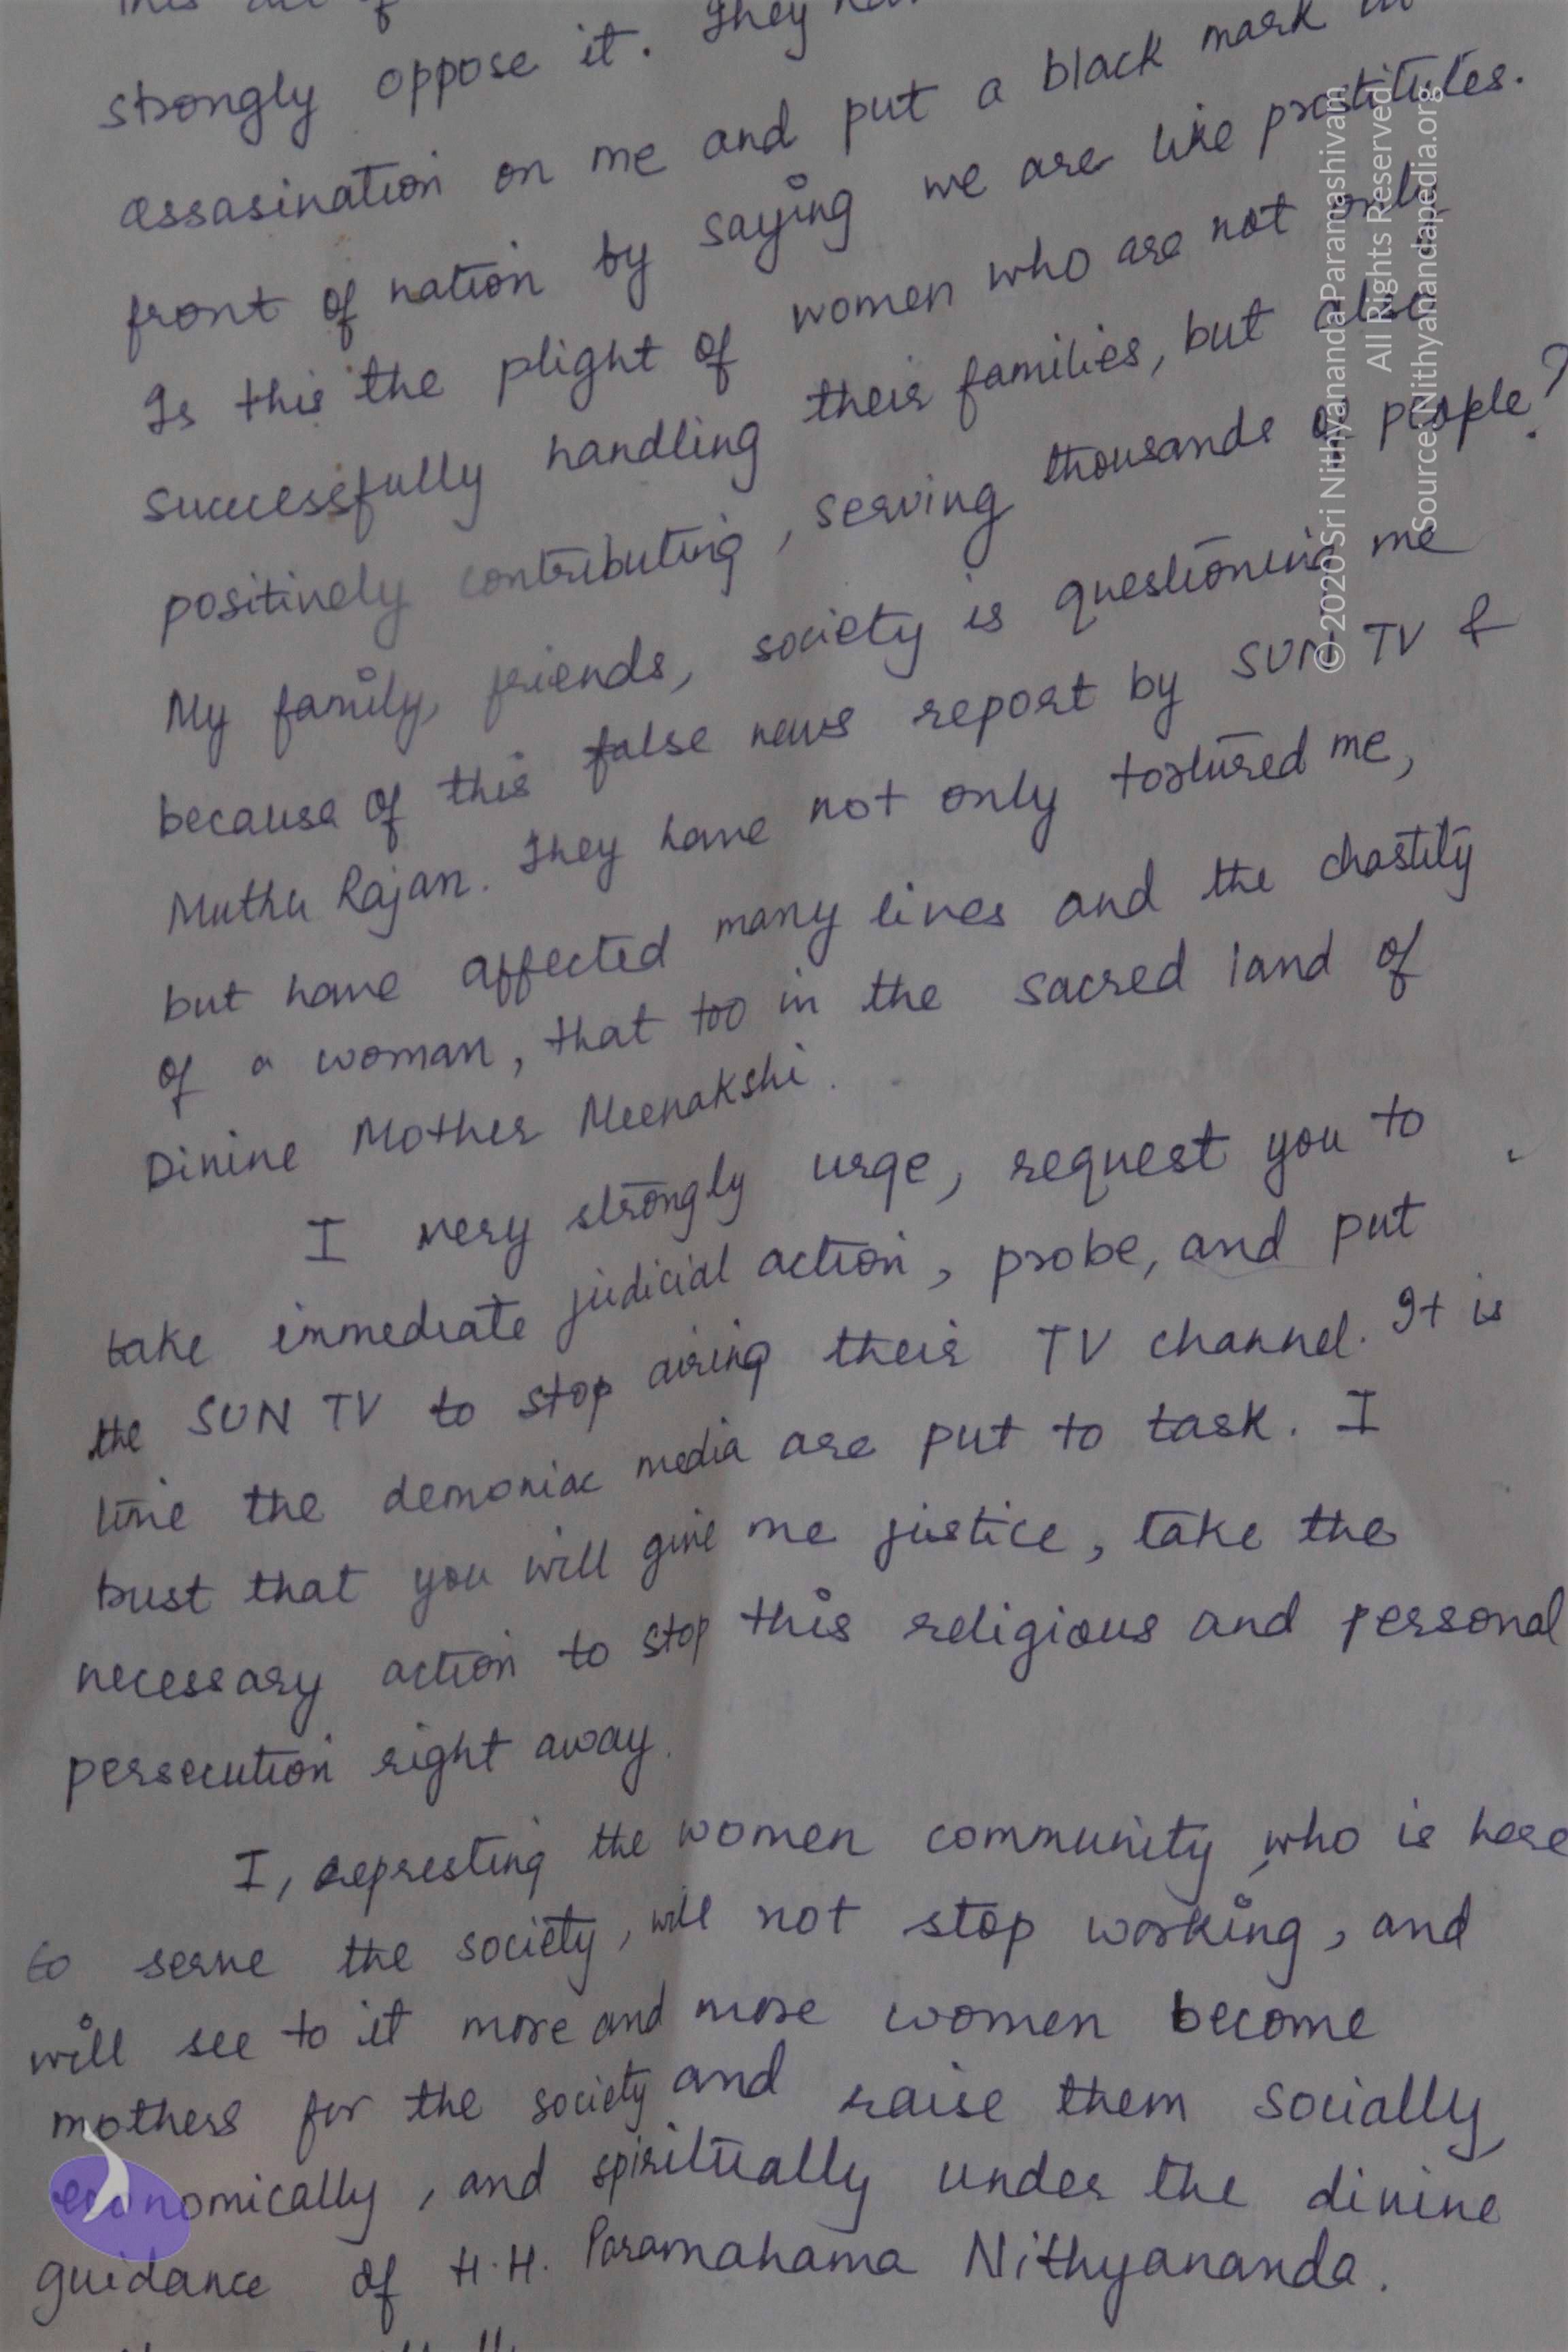 strongly oppose it. They
assasination on me and put a black mark in
front of nation by saying we are like prostitutes.
Is this the plight of women who are not only
successfully handling their families, but also
positively contributing, serving thousands of people?
My family, friends, society is questioning me
because of this false news report by SUN TV &
Muthu Rajan. They have not only tortured me,
but have affected many lives and the chastity
of a woman, that too in the sacred land of
Divine Mother Meenakshi.
I very strongly urge, request you to
take immediate judicial action, probe, and put
the SUN TV to stop airing their TV channel. It is
time the demoniac media are put to task. I
trust that you will give me justice, take the
necessary action to stop this religious and personal
persecution right away.
I, represting the women community, who is here
to serve the society, will not stop working, and
will see to it more and more women become
mothers for the society and raise them socially,
economically, and spiritually under the divine
guidance of H.H. Paramahama Nithyananda.
© 2020 Sri Nithyananda Paramashivam
All Rights Reserved
Source: Nithyanandapedia.org